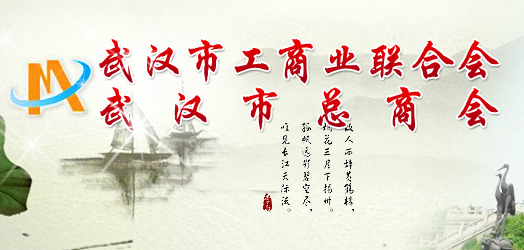 武汉市工商业联合会
武汉市总商会
故人西辞黄鹤楼，
烟花三月下扬州。
孤帆远影碧空尽，
唯见长江天际流。